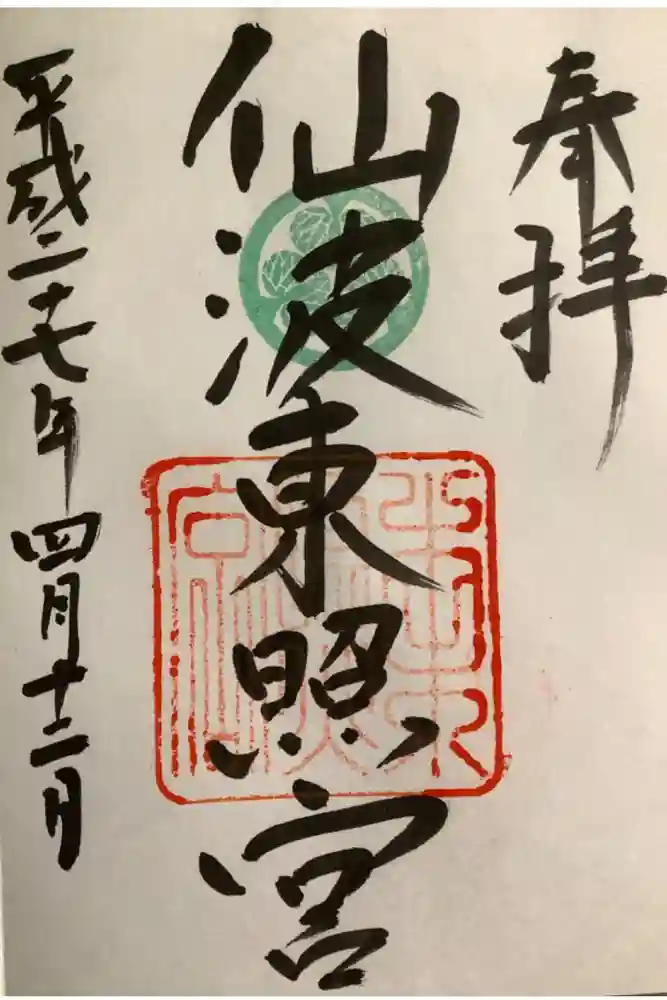 奉拝
仙波東照宮
平成二十七年四月十二日